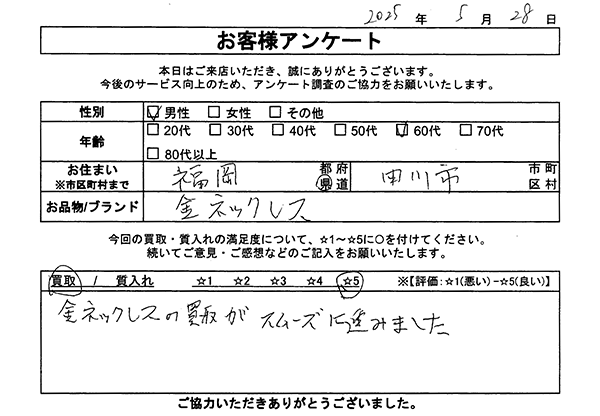 2025 年 5 月 28 日
お客様アンケート
本日はご来店いただき、誠にありがとうございます。
今後のサービス向上のため、アンケート調査のご協力をお願いいたします。
性別 ☑男性 □女性 □その他
年齢 □20代 □30代 □40代 □50代 ☑60代 □70代
□80代以上
お住まい ※市区町村まで 福岡 都府県道 田川市 市町区村
お品物/ブランド 金ネックレス
今回の買取・質入れの満足度について、☆1～☆5に○を付けてください。
続いてご意見・ご感想などのご記入をお願いいたします。
買取 / 質入れ ☆1 ☆2 ☆3 ☆4 ☆5 ※【評価:☆1(悪い)-☆5(良い)】
金ネックレスの買取がスムーズに進みました
ご協力いただきありがとうございました。